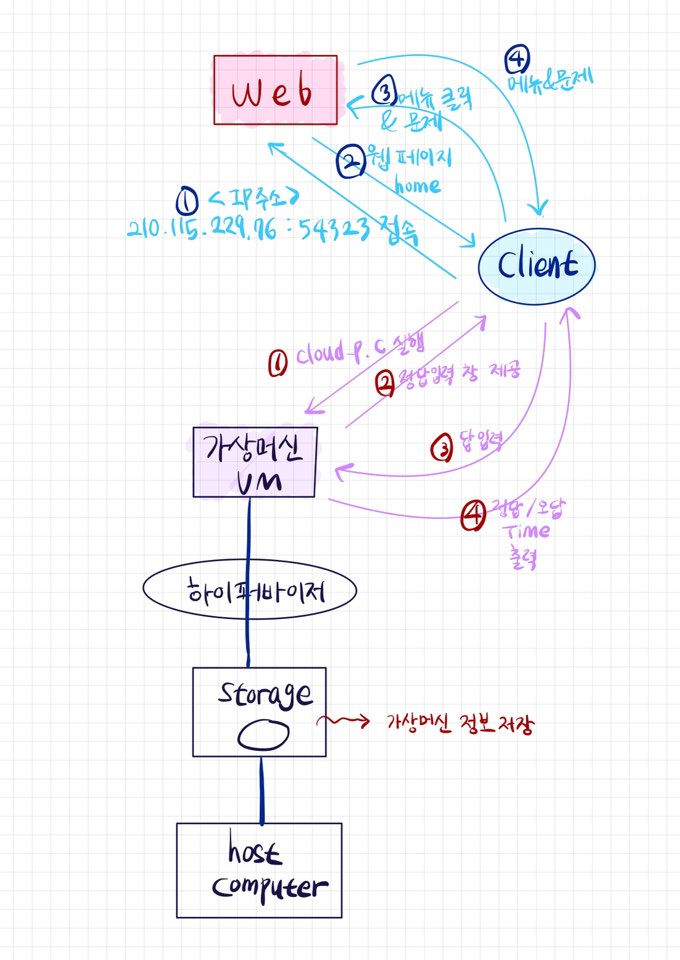 Web
④
메뉴&문제
③ 메뉴 클릭
& 문제
② 웹 페이지
home
① <IP주소>
210.115.229.76 : 54323 접속
Client
① Cloud-P.C 실행
② 정답입력 창 제공
가상머신
VM
③ 답 입력
④ 정답/오답
Time
출력
하이퍼바이저
Storage
가상머신 정보 저장
host
Computer